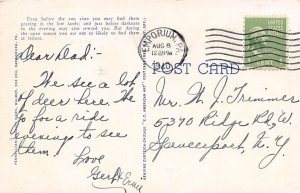 Even before the sun rises you may find them
grazing in the low lands; and just before darkness
in the evening may also reward you. But during
the open season you are not so likely to find them
at home.
EMPORIUM, PA.
AUG 8
12:30 PM
POST CARD
Dear Dad:-
We see a lot
of deer here. We
go for a ride
evenings to see
them.
Love
Gert & Ernie
Mr. W. J. Trimmer
5370 Ridge Rd, W
Spencerport, N.Y.